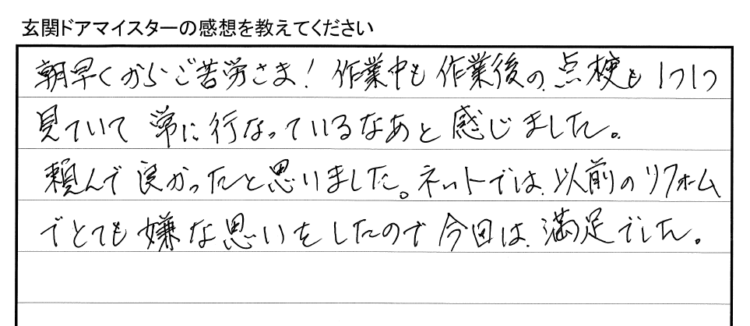 玄関ドアマイスターの感想を教えてください
朝早くからご苦労さま！作業中も作業後の点検も1つ1つ
見ていて常に行なっているなあと感じました。
頼んで良かったと思いました。ネットでは、以前のリフォーム
でとても嫌な思いをしたので今回は、満足でした。